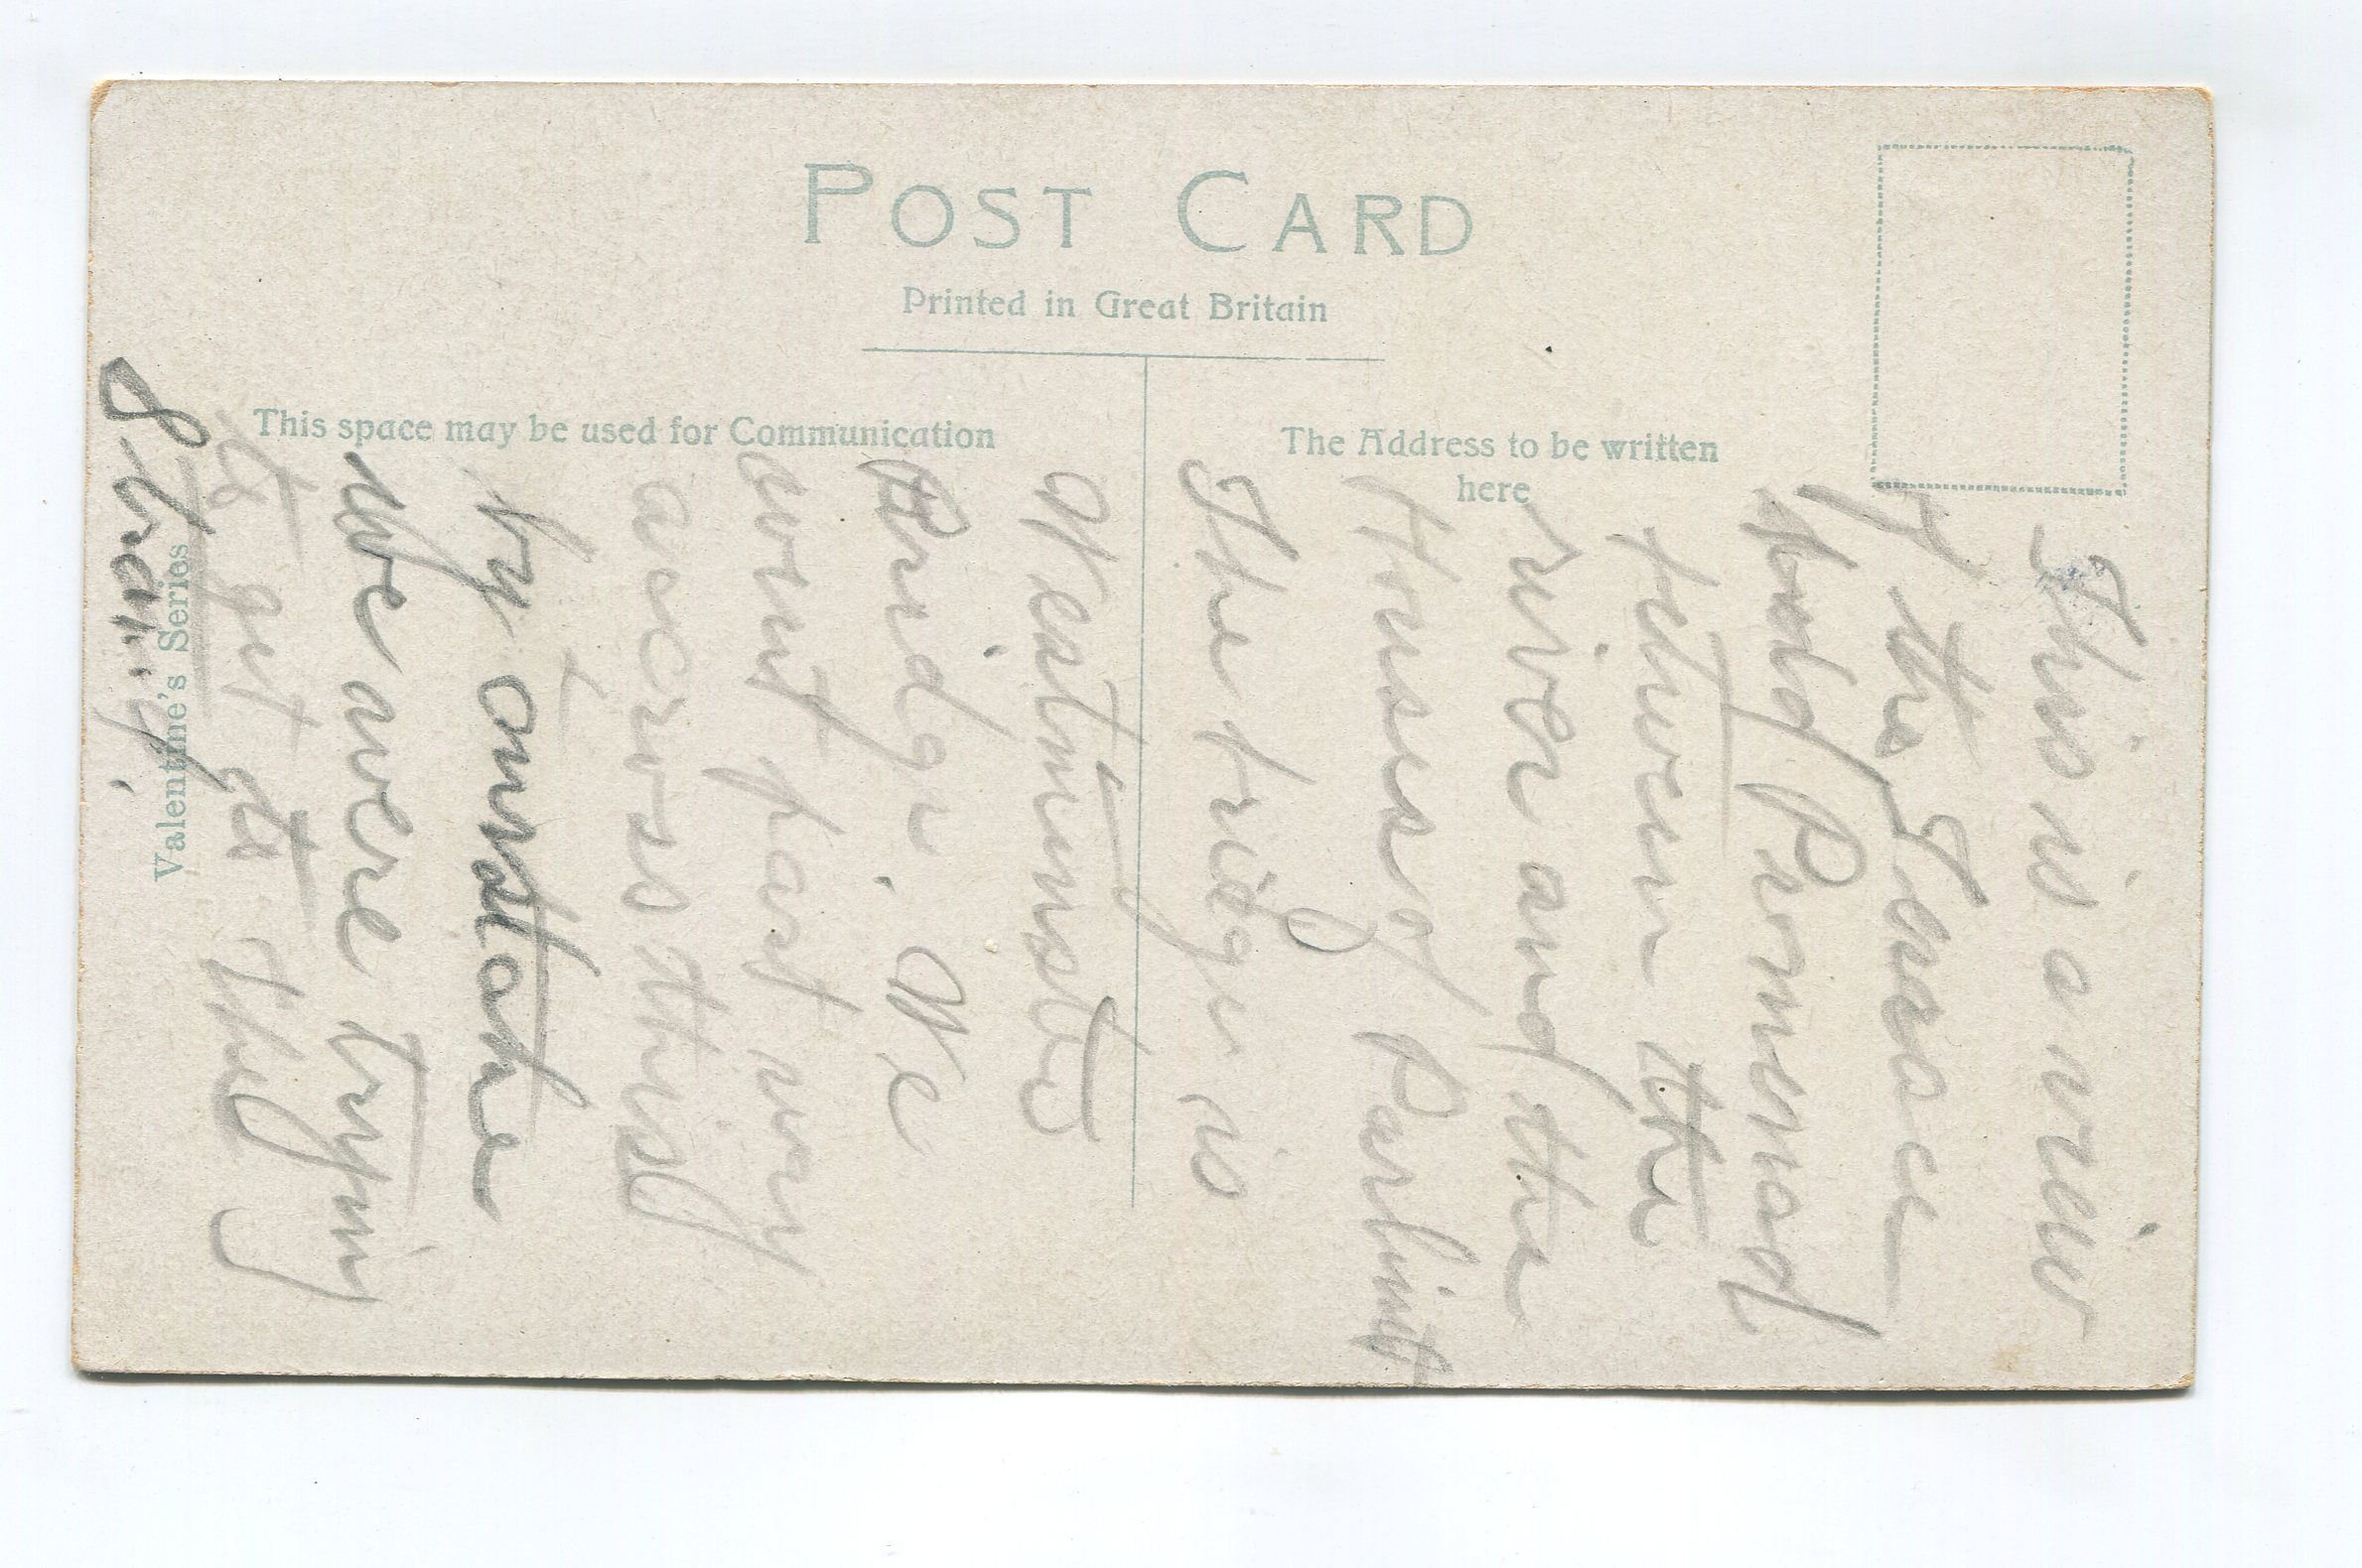 POST CARD
Printed in Great Britain
This space may be used for Communication
The Address to be written
here
Valentine's Series
This is a view
of the Terrace
Promenad
between the
river and the
Houses of Parlimt
The bridge is
Westminster
Bridge. We
went part way
across this
by mistake
We were trying
to get to the
Strand.